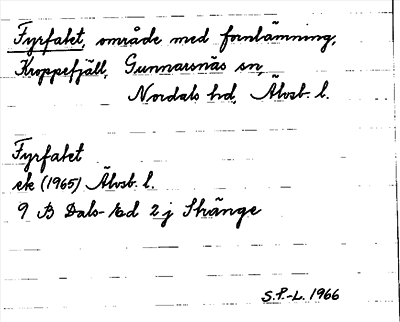 Fyrfatet, område med fornlämning,
Kroppefjäll, Gunnarsnäs sn,
Nordals hd, Älvsb. l.
Fyrfatet
ek (1965) Älvsb. l.
9 B Dals-Ed 2 j Stränge
S.P.-L. 1966